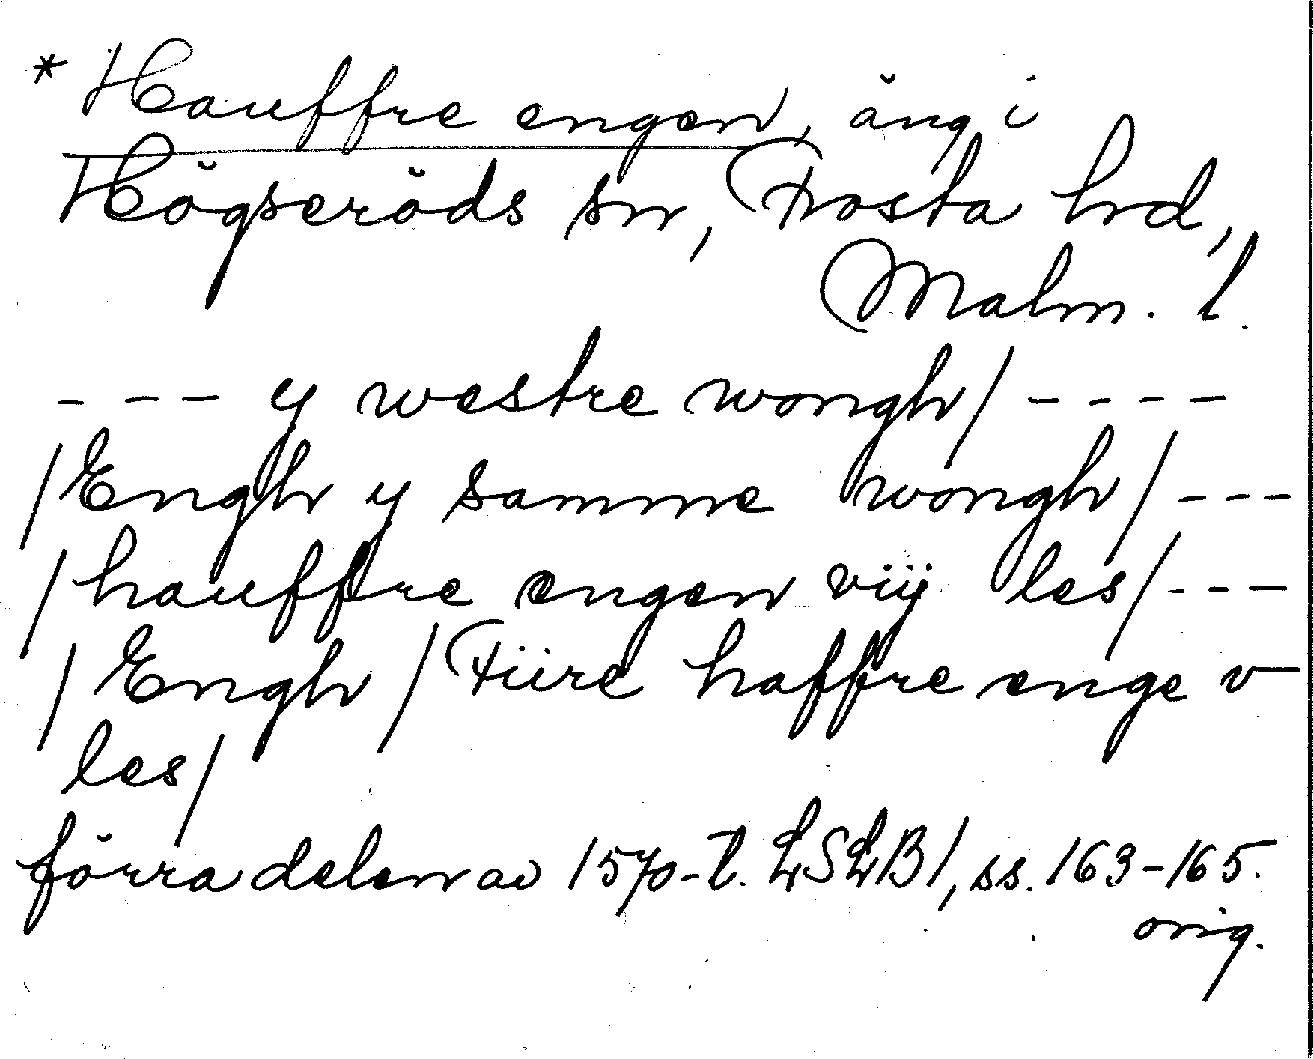 * Hauffre engen, äng i
Högseröds sn, Frosta hrd,
Malm. l.
- - - y westre wongh/ - - - -
/Engh y samme wongh/ - - -
/hauffre engen vij les/ - - -
/Engh / Fiire haffre enge v
les/
förra delen av 1570-t. LSLB1, ss. 163-165.
orig.